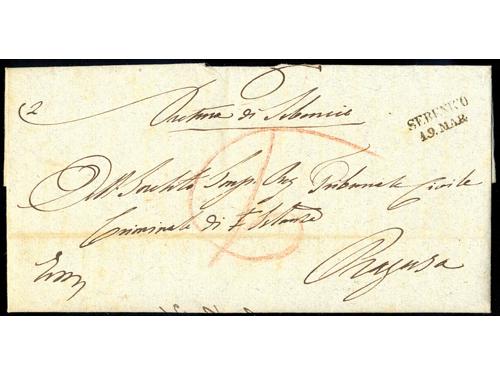 Pretura di Sebenico
SEBENICO
19. MAR
All' Inclito Imp. Reg. Tribunale Civile
Criminale di I.ª Istanza
Ragusa